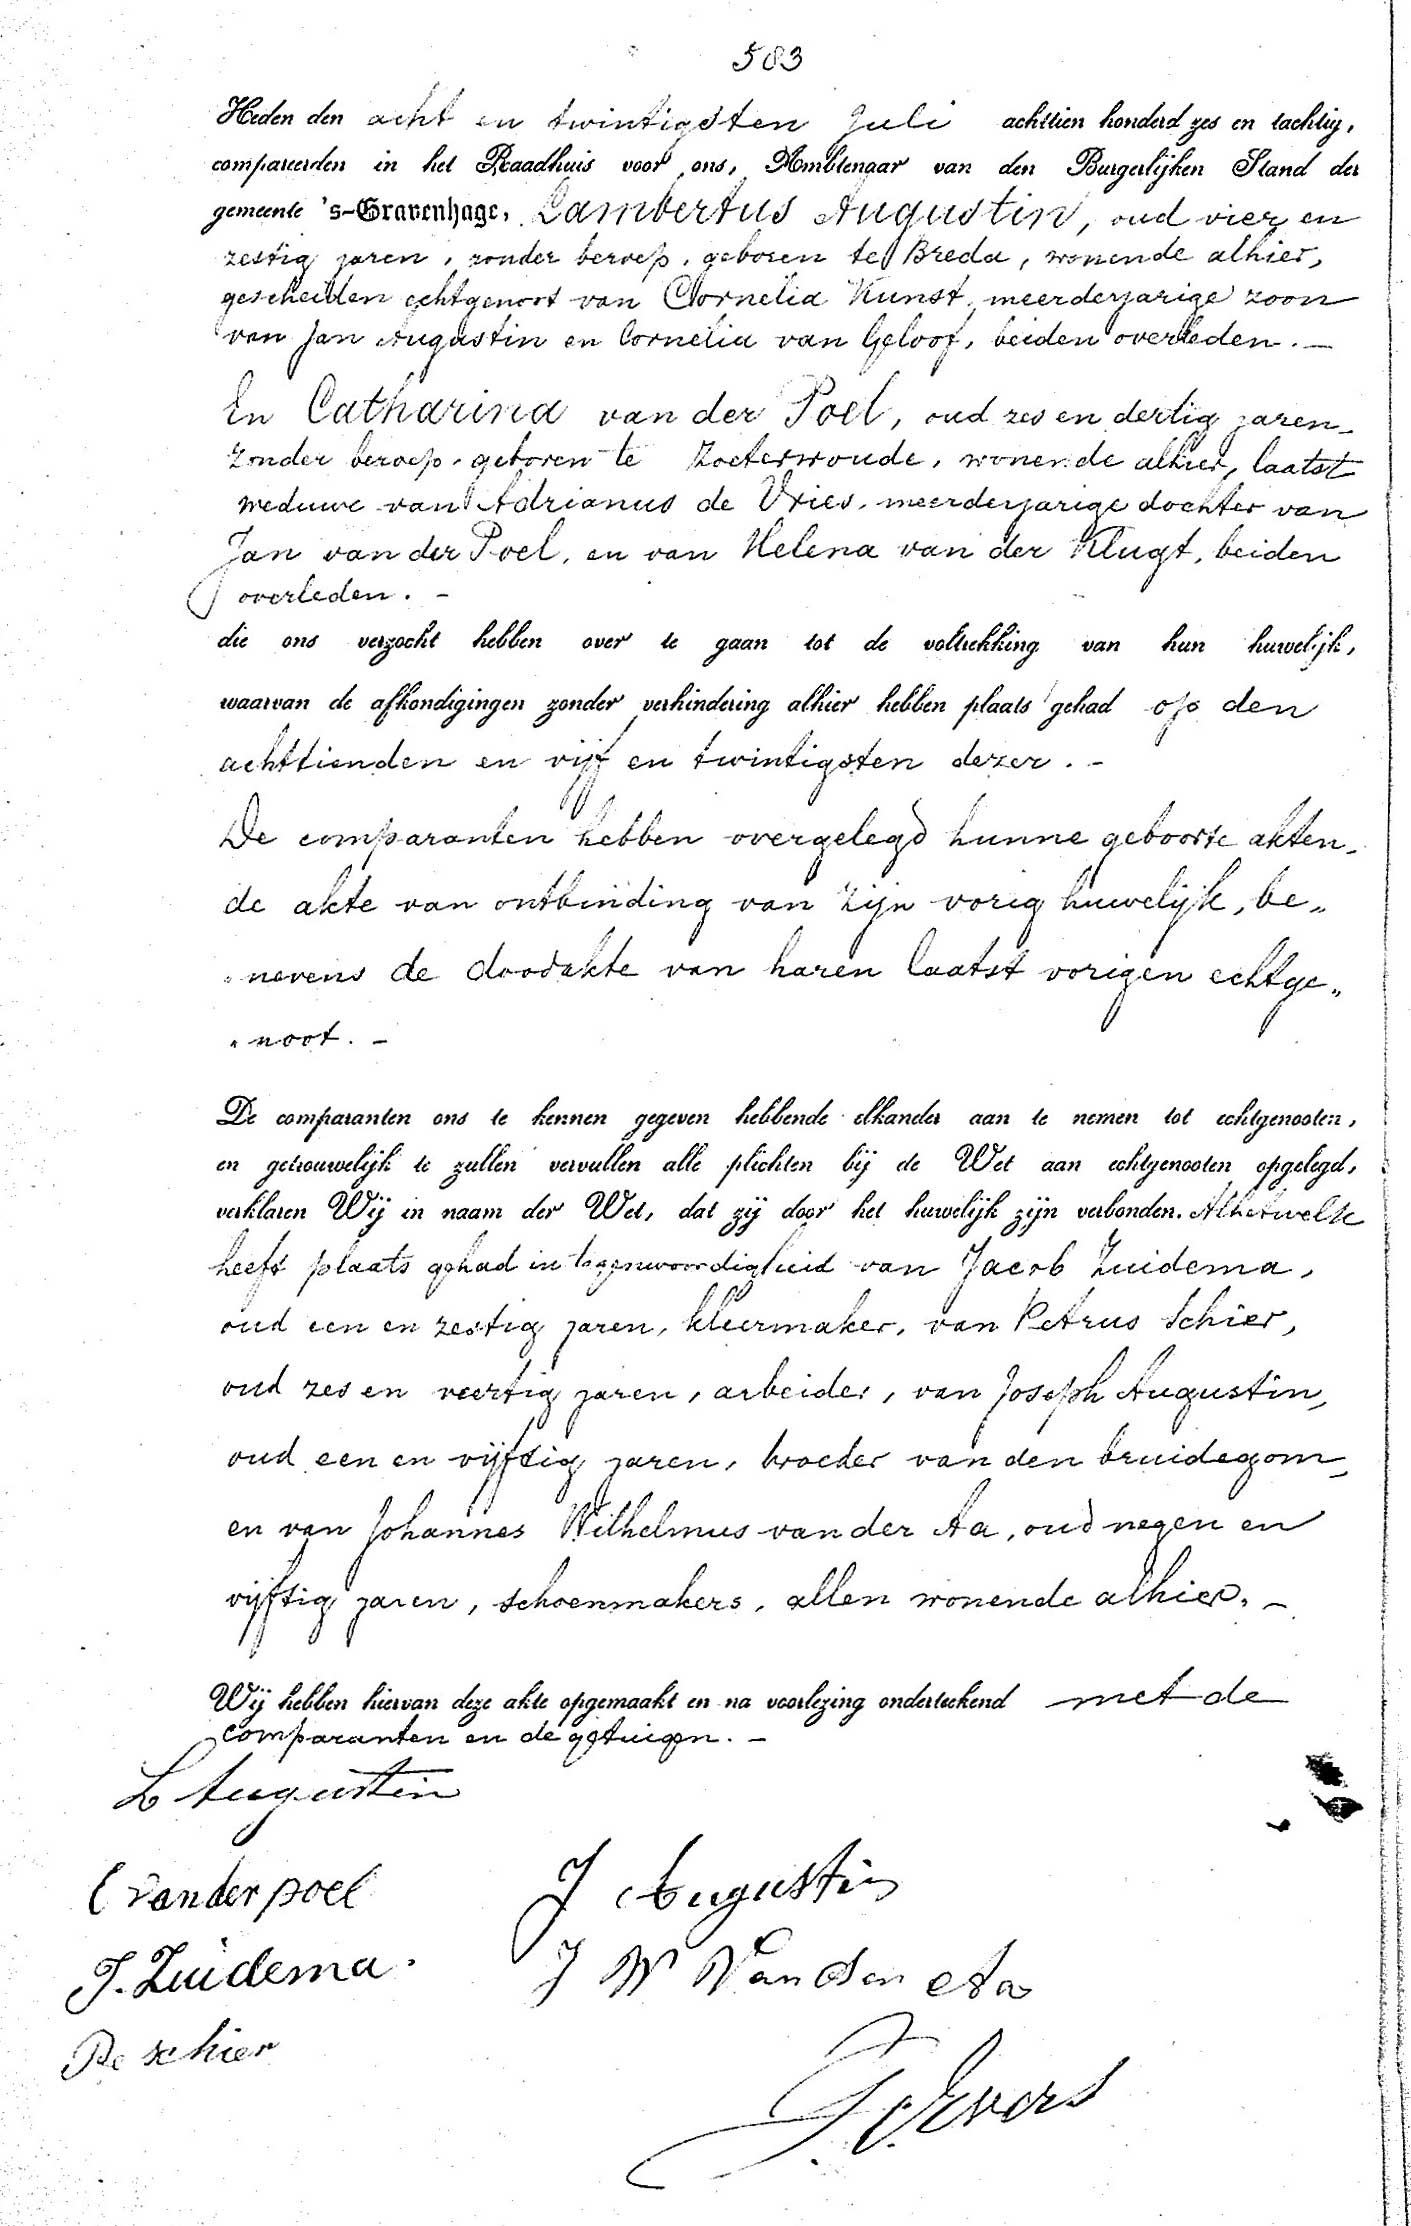 583
Heden den acht en twintigsten Juli achttien honderd zes en tachtig,
compareerden in het Raadhuis voor ons, Ambtenaar van den Burgerlijken Stand der
gemeente 's-Gravenhage, Lambertus Augustin, oud vier en
zestig jaren, zonder beroep, geboren te Breda, wonende alhier,
gescheiden echtgenoot van Cornelia Kunst, meerderjarige zoon
van Jan Augustin en Cornelia van Geloof, beiden overleden. —
En Catharina van der Poel, oud zes en dertig jaren,
zonder beroep, geboren te Zoeterwoude, wonende alhier, laatst
weduwe van Adrianus de Vries, meerderjarige dochter van
Jan van der Poel, en van Helena van der Klugt, beiden
overleden. –
die ons verzocht hebben over te gaan tot de voltrekking van hun huwelijk,
waarvan de afkondigingen zonder verhindering alhier hebben plaats gehad op den
achttienden en vijf en twintigsten dezer. –
De comparanten hebben overgelegd hunne geboorte akten,
de akte van ontbinding van zijn vorig huwelijk, be„
„nevens de doodakte van haren laatst vorigen echtge„
„noot. –
De comparanten ons te kennen gegeven hebbende elkander aan te nemen tot echtgenooten,
en getrouwelijk te zullen vervullen alle plichten bij de Wet aan echtgenooten opgelegd,
verklaren Wij in naam der Wet, dat zij door het huwelijk zijn verbonden. Alhetwelk
heeft plaats gehad in tegenwoordigheid van Jacob Zuidema,
oud een en zestig jaren, kleermaker, van Petrus Schier,
oud zes en veertig jaren, arbeider, van Joseph Augustin,
oud een en vijftig jaren, broeder van den bruidegom,
en van Johannes Wilhelmus van der Aa, oud negen en
vijftig jaren, schoenmakers, allen wonende alhier. –
Wij hebben hiervan deze akte opgemaakt en na voorlezing onderteekend met de
comparanten en de getuigen. –
L Augustin
C van der poel
J Augustin
J. Zuidema.
J W Van der Aa
Pe schier
Evers